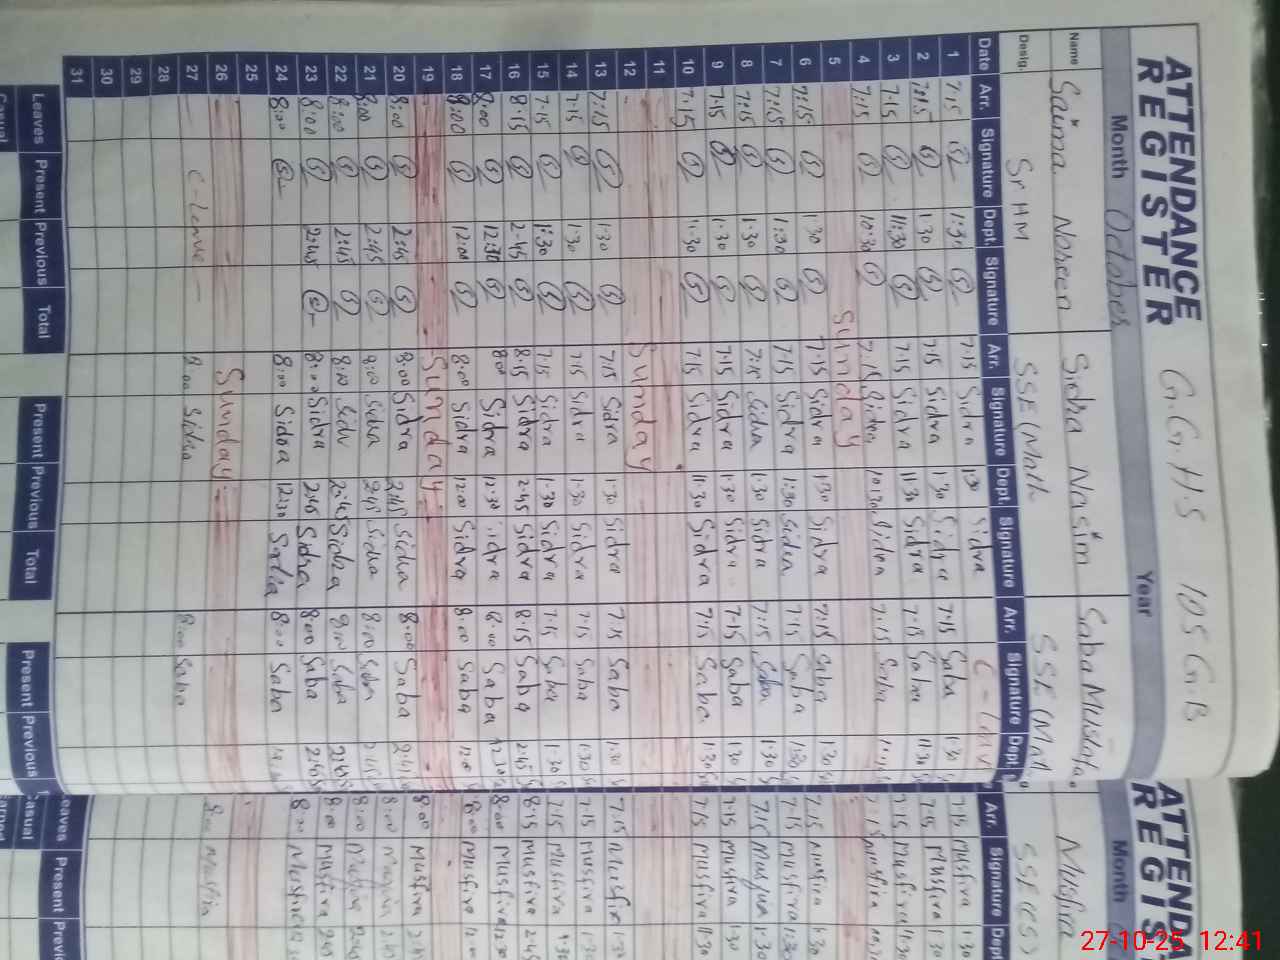 ATTENDANCE REGISTER G.G.H.S 105 G.B
Month October Year
Name Saima Noreen Sidra Nasim Saba Mushtaq
Desig Sr HM SSE (Math SSE (Mat
Date Arr. Signature Dept. Signature Arr. Signature Dept. Signature Arr. Signature Dept.
1 7:15 1:30 7:15 Sidra 1:30 Sidra C-leav
2 7:15 1:30 7:15 Sidra 1:30 Sidra 7:15 Saba 1:30
3 7:15 11:30 7:15 Sidra 11:30 Sidra 7:15 Saba 11:30
4 7:15 10:30 7:15 Sidra 10:30 Sidra 7:15 Saba
5 Sunday
6 7:15 1:30 7:15 Sidra 1:30 Sidra 7:15 Saba 1:30
7 7:15 1:30 7:15 Sidra 1:30 Sidra 7:15 Saba 1:30
8 7:15 1:30 7:15 Sidra 1:30 Sidra 7:15 Saba 1:30
9 7:15 1:30 7:15 Sidra 1:30 Sidra 7:15 Saba 1:30
10 7:15 11:30 7:15 Sidra 11:30 Sidra 7:15 Saba 1:30
11
12 Sunday
13 7:15 1:30 7:15 Sidra 1:30 Sidra 7:15 Saba 1:30
14 7:15 1:30 7:15 Sidra 1:30 Sidra 7:15 Saba 1:30
15 7:15 1:30 7:15 Sidra 1:30 Sidra 7:15 Saba 1:30
16 8:15 2:45 8:15 Sidra 2:45 Sidra 8:15 Saba 2:45
17 8:00 12:30 8:00 Sidra 12:30 Sidra 8:00 Saba 12:30
18 8:00 12:00 8:00 Sidra 12:00 Sidra 8:00 Saba 12:00
19 Sunday
20 8:00 2:45 8:00 Sidra 2:45 Sidra 8:00 Saba 2:45
21 8:00 2:45 8:00 Sidra 2:45 Sidra 8:00 Saba 2:45
22 8:00 2:45 8:00 Sidra 2:45 Sidra 8:00 Saba 2:45
23 8:00 2:45 8:00 Sidra 2:45 Sidra 8:00 Saba 2:45
24 8:00 8:00 Sidra 12:30 Sidra 8:00 Saba
25
26 Sunday
27 C-leave 8:00 Sidra 8:00 Saba
28
29
30
31
Leaves Present Previous Total Present Previous Total Present Previous
Casual
ATTENDA
REGIS
Month
Musfira
SSE (CS)
Arr. Signature Dept
7:15 Musfira 1:30
7:15 Musfira 1:30
7:15 Musfira 11:30
7:15 Musfira 10:30
7:15 Musfira 1:30
7:15 Musfira 1:30
7:15 Musfira 1:30
7:15 Musfira 1:30
7:15 Musfira 11:30
7:15 Musfira 1:30
7:15 Musfira 1:30
7:15 Musfira 1:30
8:15 Musfira 2:45
8:00 Musfira 12:30
8:00 Musfira 12:00
8:00 Musfira 2:45
8:00 Musfira 2:45
8:00 Musfira 2:45
8:00 Musfira 2:45
8:00 Musfira
8:00 Musfira
eaves Present Previ
Casual
27-10-25 12:41